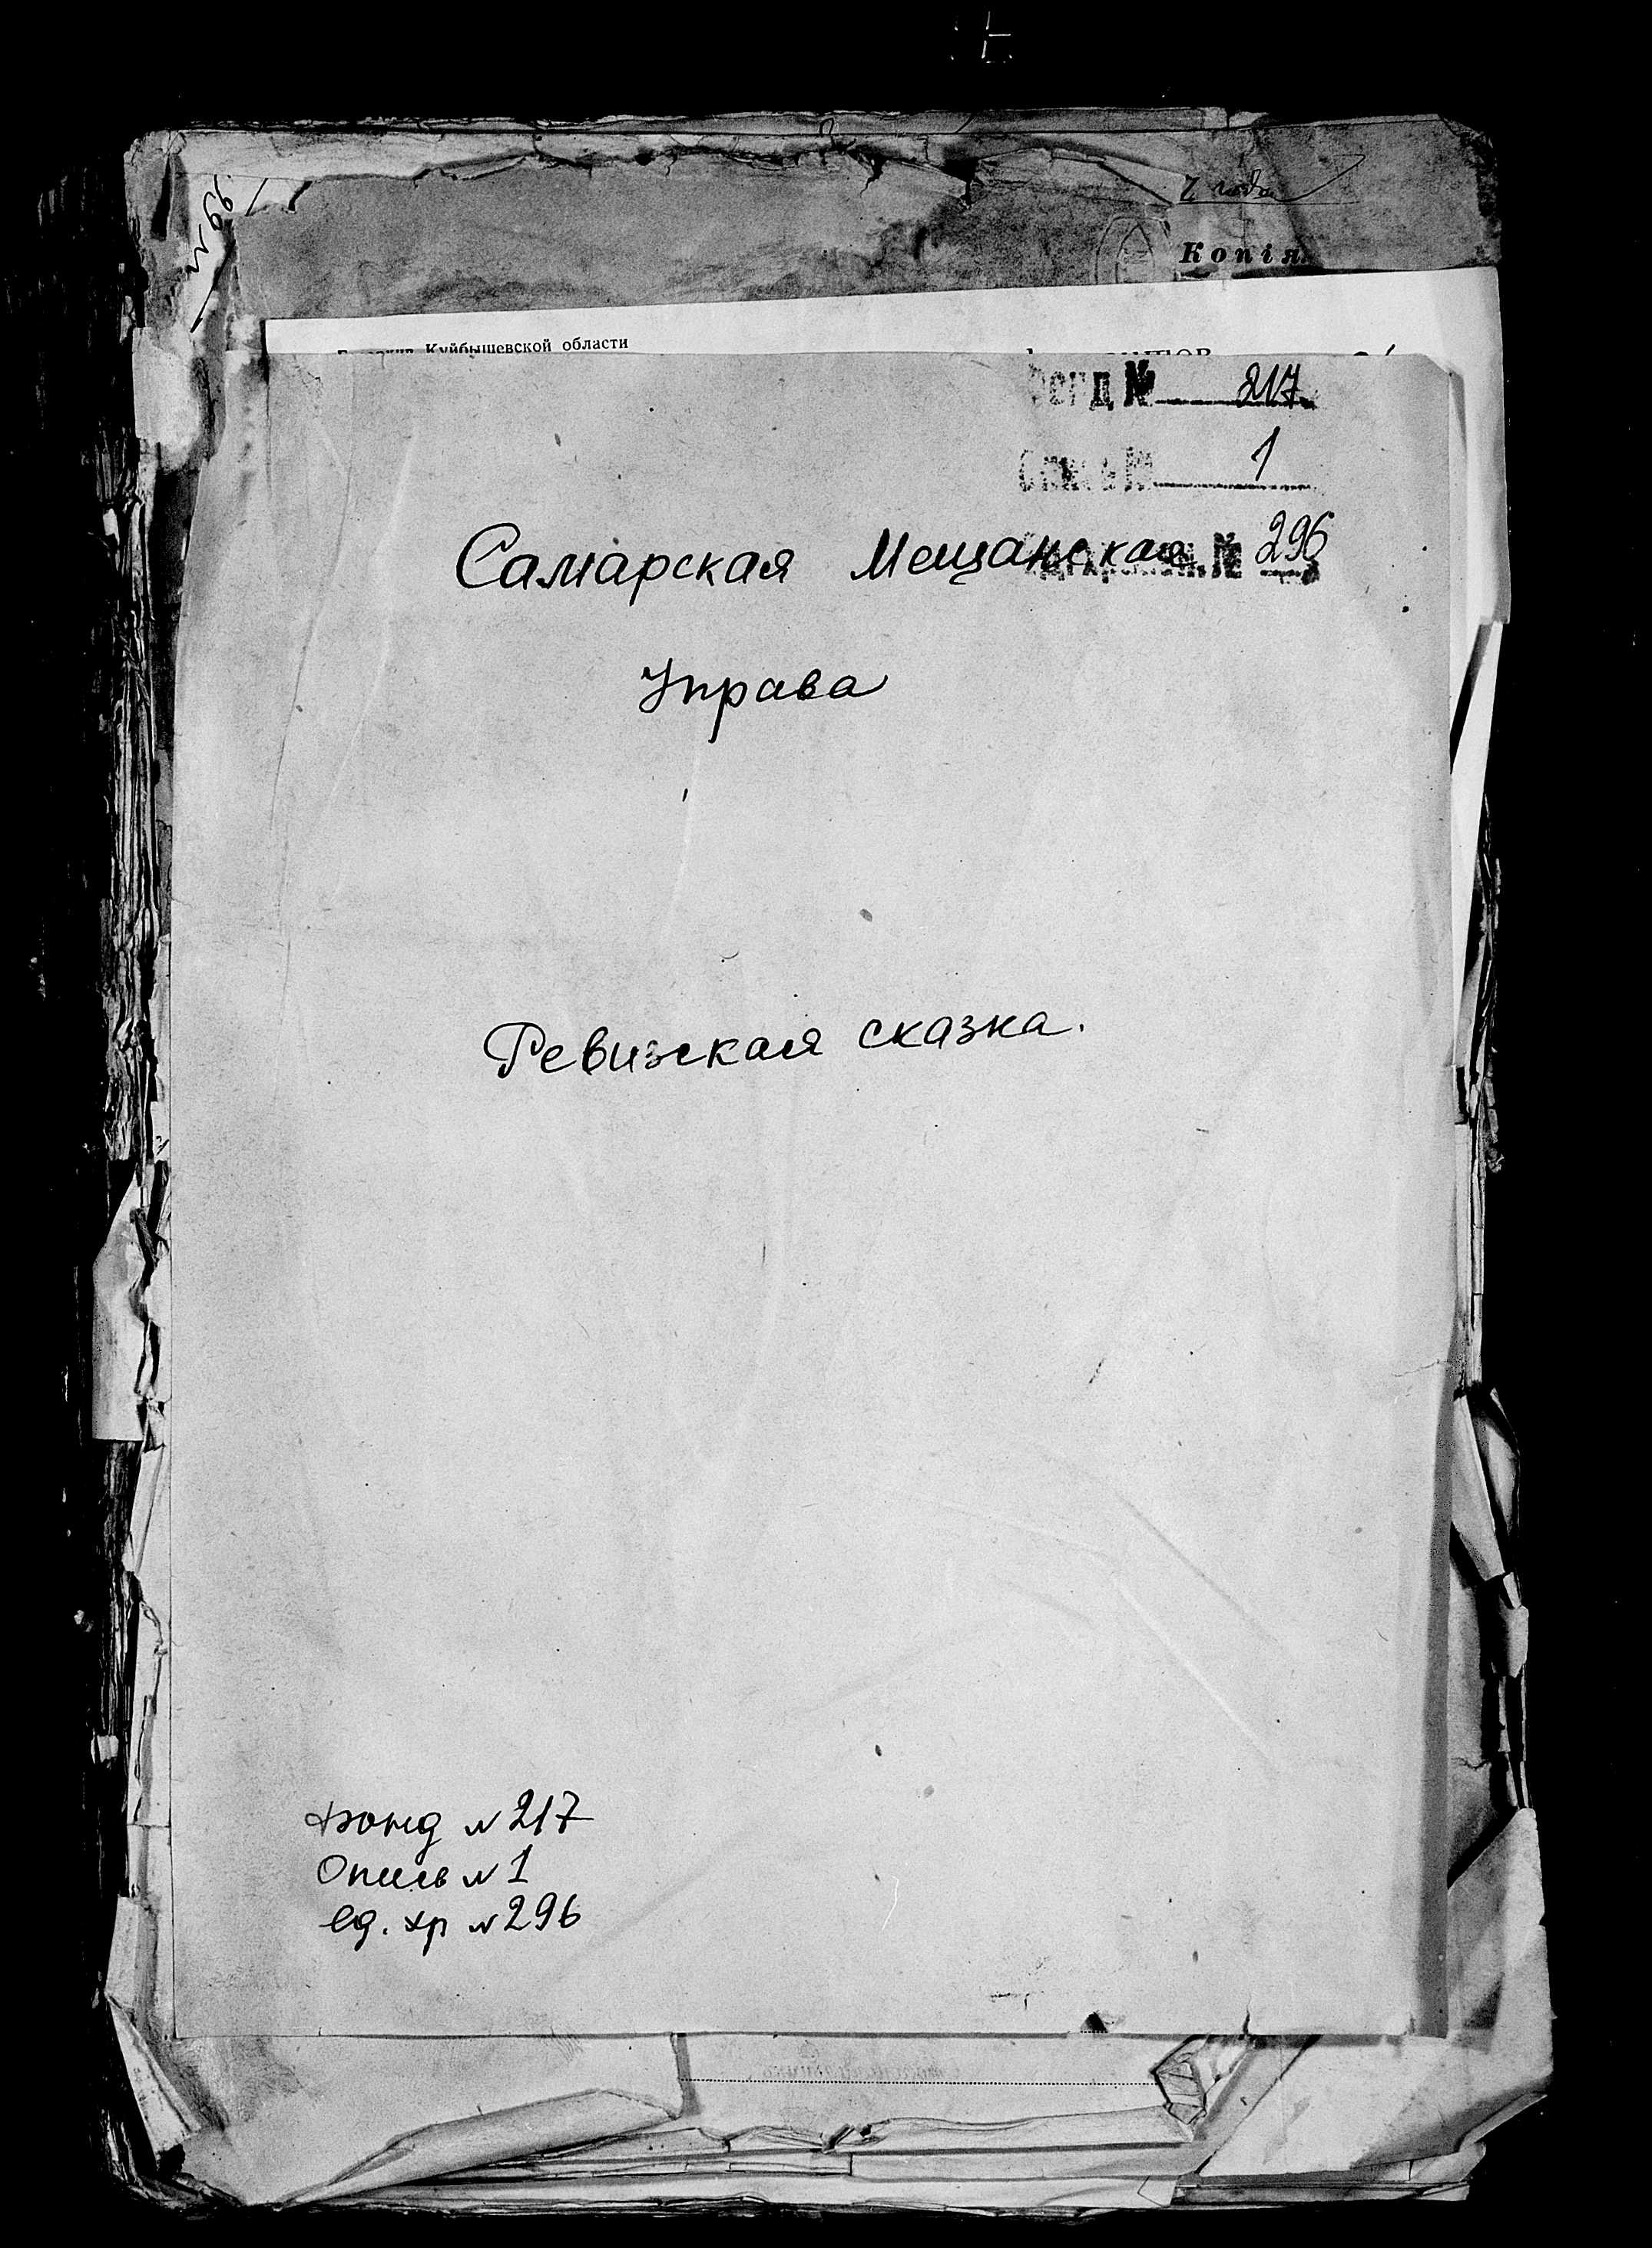 года
Копія
Куйбышевской области
Фонд № 217
Опись № 1
№ 296
Самарская Мещанская
Управа
Ревизская сказка.
Фонд № 217
Опись № 1
Ед. хр № 296